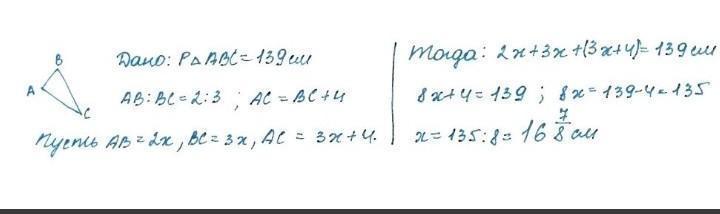 B
A
C
Дано: P△ABC=139см
AB:BC=2:3 ; AC=BC+4
Пусть AB=2x, BC=3x, AC = 3x+4.
Тогда: 2x+3x+(3x+4)=139см
8x+4=139 ; 8x=139-4=135
x=135:8=16 7/8 см